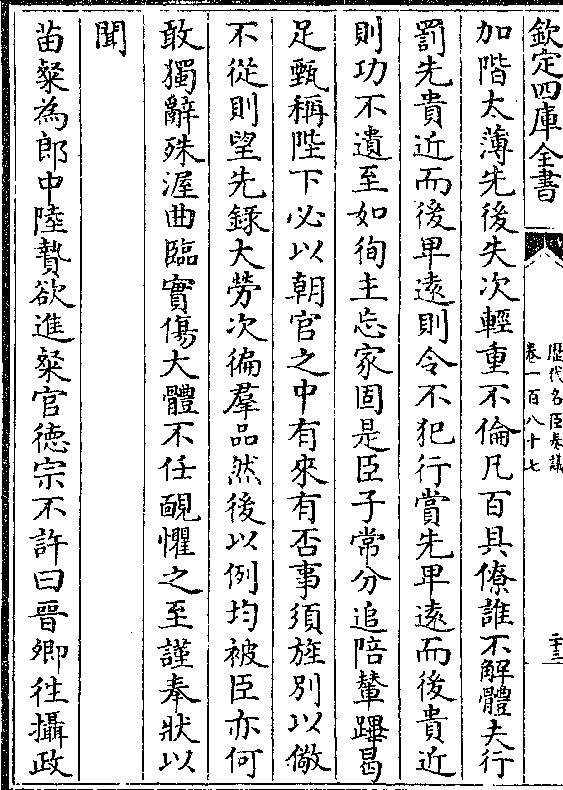 欽定四庫全書
歷代名臣奏議
卷一百八十七
二十三
加階太薄先後失次輕重不倫凡百具僚誰不解體夫行
罰先貴近而後卑遠則令不犯行賞先卑遠而後貴近
則功不遺至如徇主忘家固是臣子常分追陪輦蹕曷
足甄稱陛下必以朝官之中有來有否事須旌別以儆
不從則望先錄大勞次徧羣品然後以例均被臣亦何
敢獨辭殊渥曲臨實傷大體不任靦懼之至謹奉狀以
聞
苗粲為郎中陸贄欲進粲官德宗不許曰晉卿往攝政